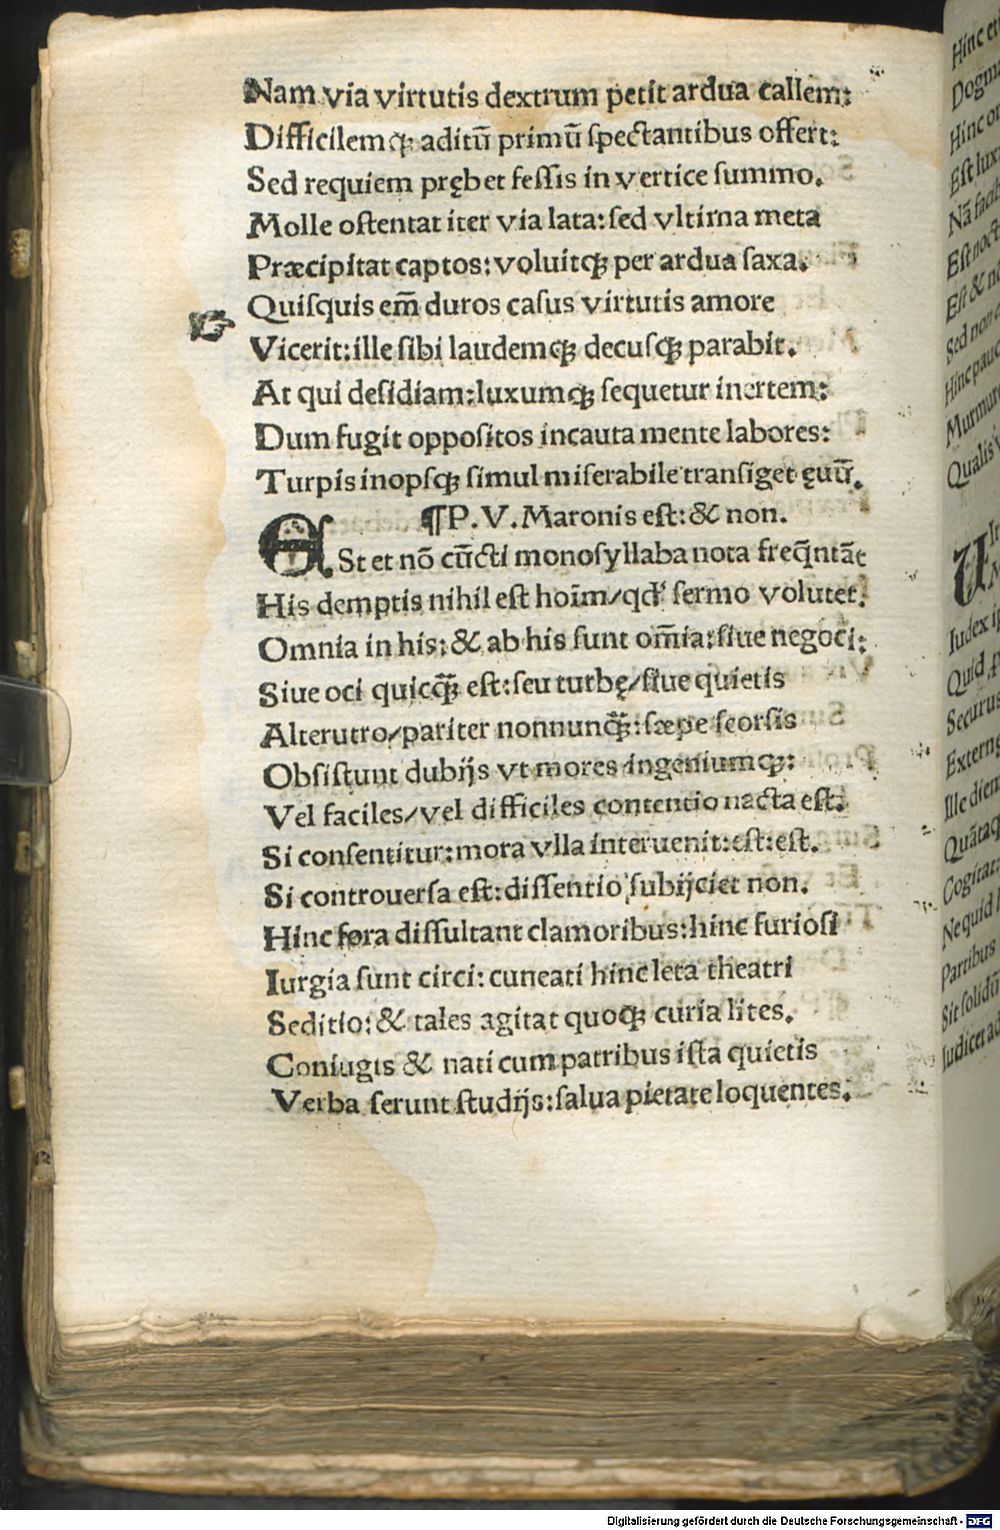 Nam via virtutis dextrum petit ardua callem:
Difficilemqꝫ aditū primū ſpectantibus offert:
Sed requiem prębet feſſis in vertice ſummo.
Molle oſtentat iter via lata: ſed vltima meta
Præcipitat captos: voluitqꝫ per ardua ſaxa.
Quiſquis em̄ duros caſus virtutis amore
Vicerit: ille ſibi laudemqꝫ decuſqꝫ parabit.
At qui deſidiam: luxumqꝫ ſequetur inertem:
Dum fugit oppoſitos incauta mente labores:
Turpis inopſqꝫ ſimul miſerabile tranſiget ęuū.
¶P.V. Maronis eſt: & non.
ESt et nō cūcti monoſyllaba nota freq̄ntāt
His demptis nihil eſt hoīm/qd' ſermo volutet.
Omnia in his: & ab his ſunt om̄ia: ſiue negoci:
Siue oci quicq̄ꝫ eſt: ſeu turbę/ſiue quietis
Alterutro/pariter nonnunq̄ꝫ: ſæpe ſeorſis
Obſiſtunt dubijs vt mores ingeniumqꝫ:
Vel faciles/vel difficiles contentio nacta eſt.
Si conſentitur: mora vlla interuenit: eſt: eſt.
Si controuerſa eſt: diſſentio ſubijciet non.
Hinc fora diſſultant clamoribus: hinc furioſi
Iurgia ſunt circi: cuneati hinc leta theatri
Seditio: & tales agitat quoqꝫ curia lites.
Coniugis & nati cum patribus iſta quietis
Verba ſerunt ſtudijs: ſalua pietate loquentes.
Hinc et
Dogma
Hinc
Eſt lux
Nā facib
Eſt noct
Eſt & n
Sed non
Hinc pauc
Murmur
Qualis
Iudex
Quid
Securus
Extern
Ille dien
Quātaq
Cogitat:
Ne quid
Partibus
Sit ſolidū
Iudicet ad
Digitalisierung gefördert durch die Deutsche Forschungsgemeinschaft - DFG